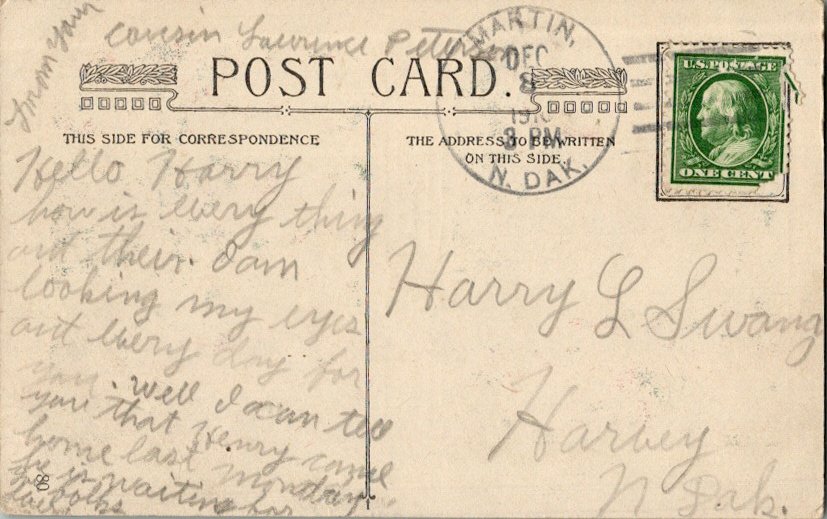 From your
cousin Lawrence Peterson
POST CARD.
MARTIN,
DEC
8
3 PM
N. DAK.
U.S. POSTAGE
ONE CENT
THIS SIDE FOR CORRESPONDENCE
THE ADDRESS TO BE WRITTEN
ON THIS SIDE.
Hello Harry
how is every thing
out their. I am
looking my eyes
out every day for
you. well I can tell
you that Henry came
home last monday
he is waiting for
folks
Harry L Swang
Harvey
N Dak.
80